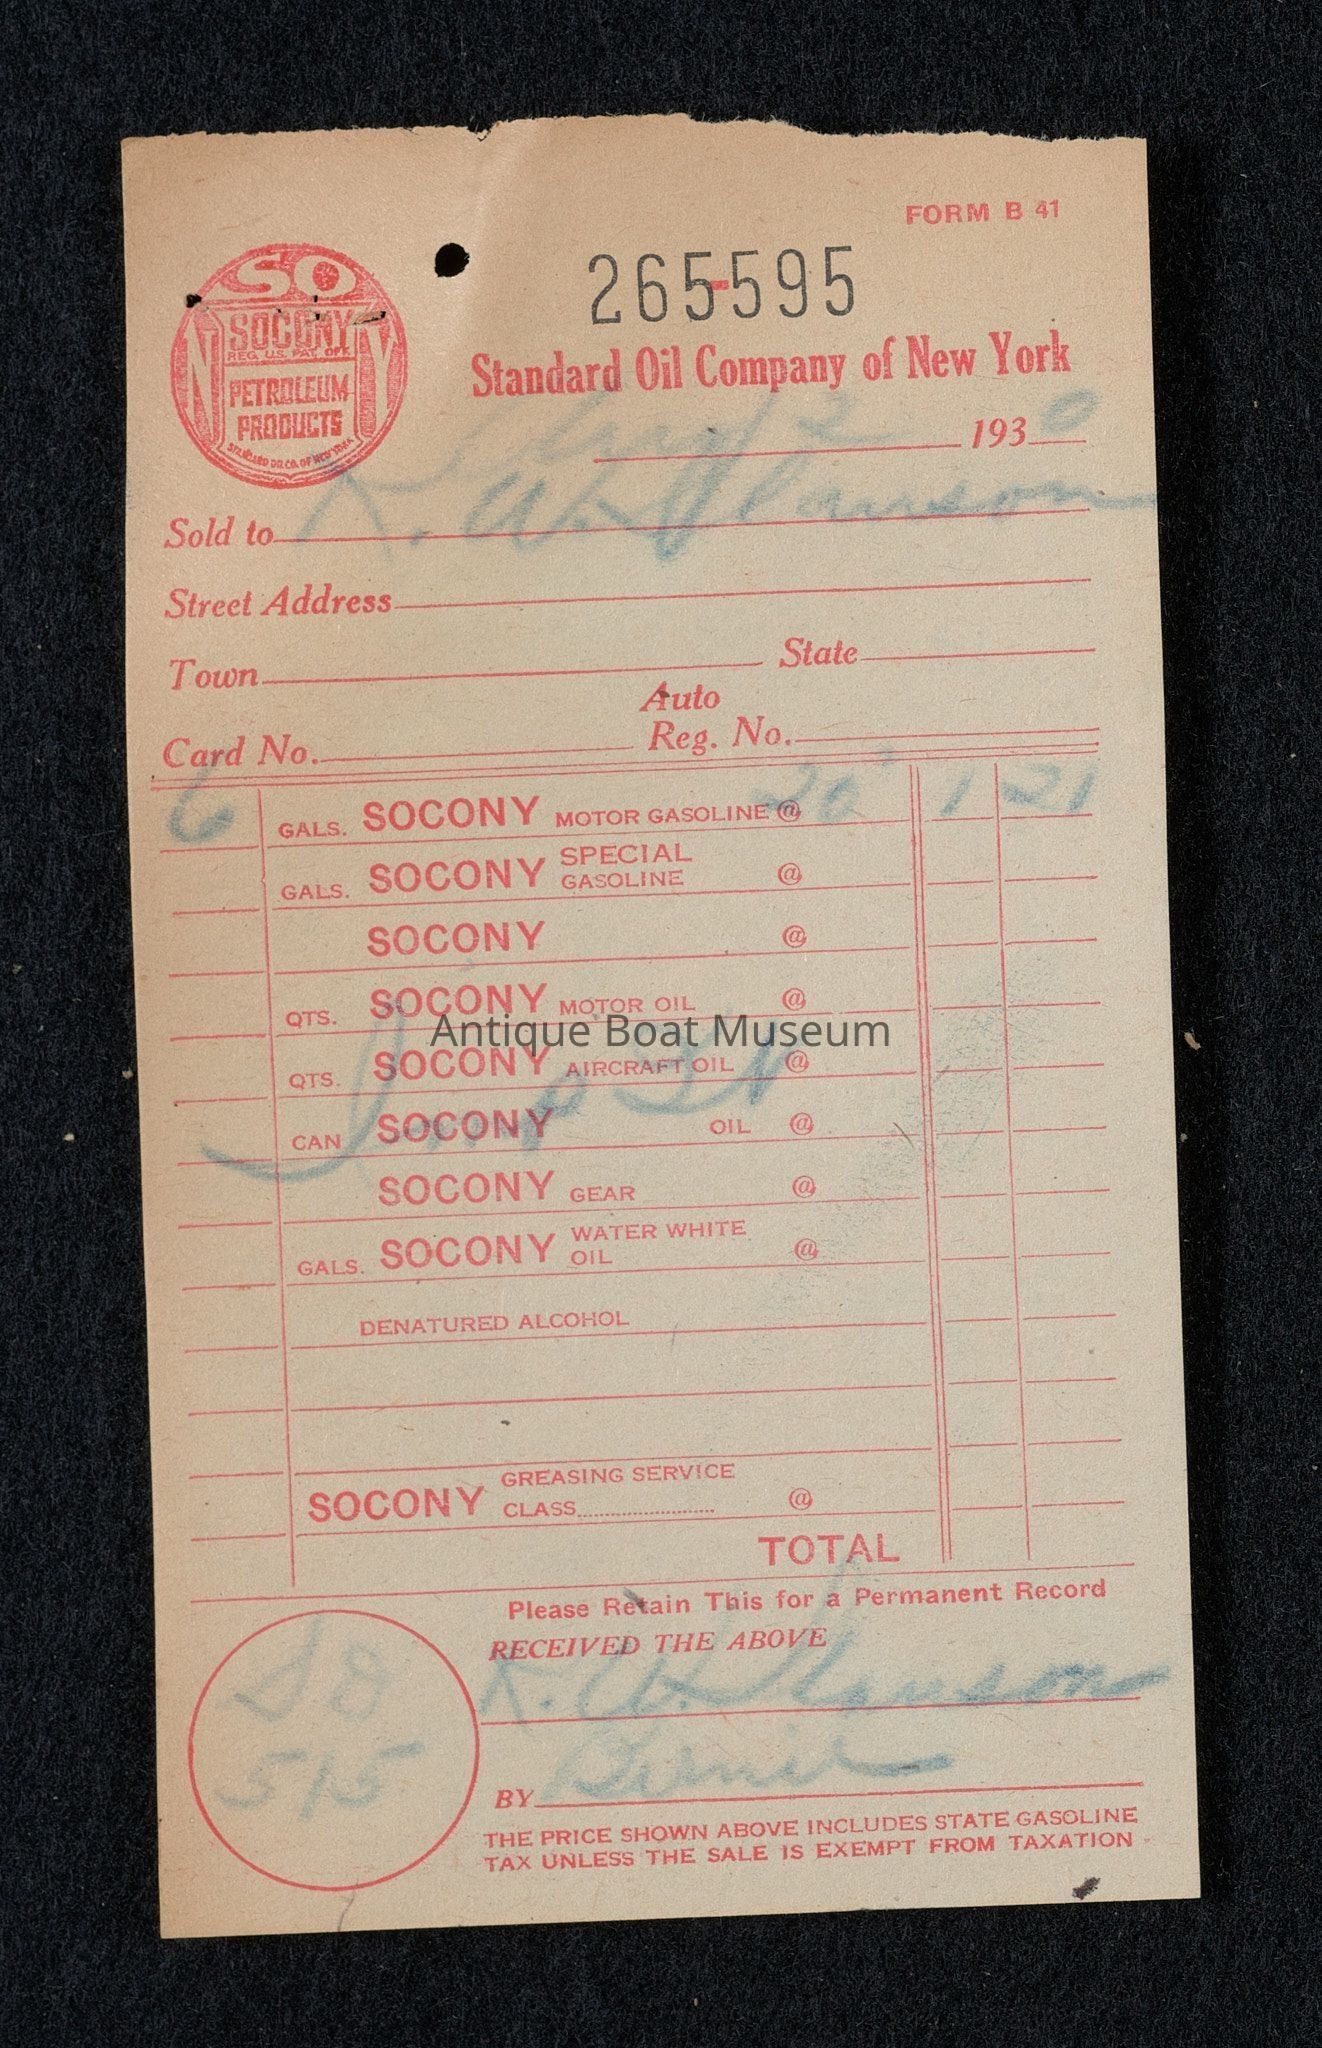 FORM B 41
265-595
SO
NY
SOCONY
REG. U.S. PAT. OFF.
PETROLEUM
PRODUCTS
STANDARD OIL CO. OF NEW YORK
Standard Oil Company of New York
2 1930
Sold to K. W.
Street Address
Town State
Auto
Card No. Reg. No.
6 GALS. SOCONY MOTOR GASOLINE @ 20 1 21
GALS. SOCONY SPECIAL GASOLINE @
SOCONY @
QTS. SOCONY MOTOR OIL @
Antique Boat Museum
QTS. SOCONY AIRCRAFT OIL @
CAN SOCONY OIL @
SOCONY GEAR @
GALS. SOCONY WATER WHITE OIL @
DENATURED ALCOHOL
SOCONY GREASING SERVICE CLASS @
TOTAL
Please Retain This for a Permanent Record
RECEIVED THE ABOVE
K. W.
515
BY
THE PRICE SHOWN ABOVE INCLUDES STATE GASOLINE
TAX UNLESS THE SALE IS EXEMPT FROM TAXATION